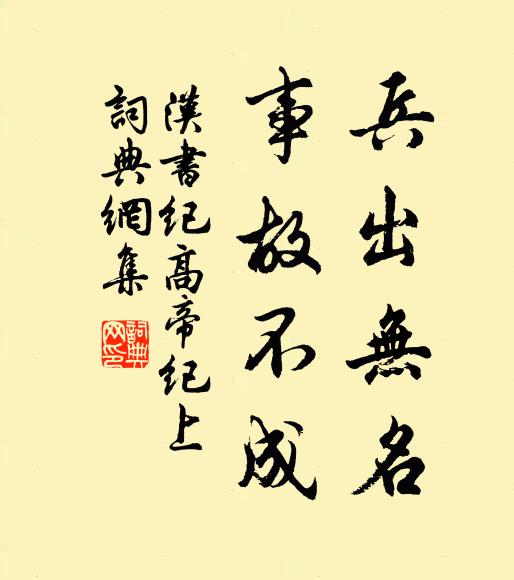 兵出無名
事故不成
漢書紀高帝紀上
詞典網集
詞典
网印